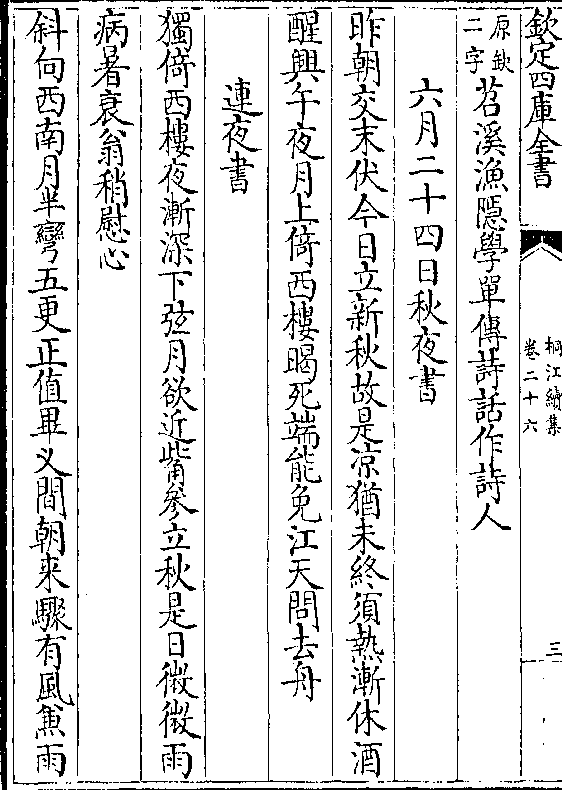 欽定四庫全書
桐江續集
卷二十六
三
原欽
二字
苕溪漁隠學單傳詩話作詩人
六月二十四日秋夜書
昨朝交末伏今日立新秋故是凉猶未終須熱漸休酒
醒興午夜月上倚西樓暍死端能免江天問去舟
連夜書
獨倚西樓夜漸深下弦月欲近觜參立秋是日微微雨
病暑衰翁稍慰心
斜向西南月半彎五更正值畢义間朝来驟有風兼雨